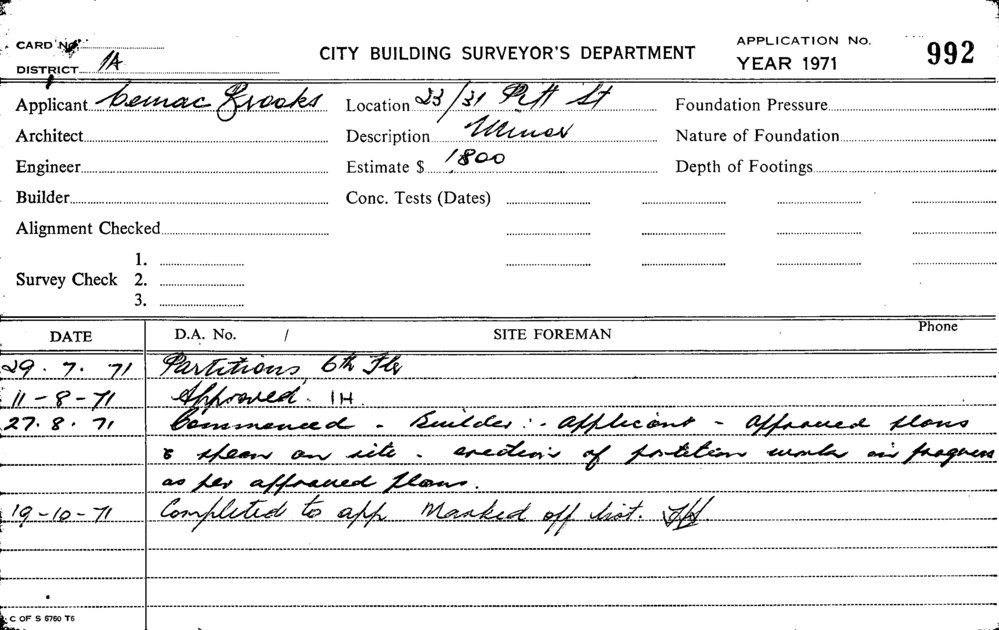 CARD No.
DISTRICT 1A
CITY BUILDING SURVEYOR'S DEPARTMENT
APPLICATION No.
YEAR 1971
992
Applicant Cemac Brooks
Location 23/31 Pitt St
Foundation Pressure
Architect
Description Minor
Nature of Foundation
Engineer
Estimate $ 1800
Depth of Footings
Builder
Conc. Tests (Dates)
Alignment Checked
Survey Check
1.
2.
3.
DATE
D.A. No. /
SITE FOREMAN
Phone
29. 7. 71 Partitions 6th Flr
11-8-71 Approved. IH
27. 8. 71 Commenced - Builder :- applicant - approved plans
& specn on site - erection of partition works in progress
as per approved plans.
19-10-71 Completed to app Marked off list.
C OF S 6760 T6